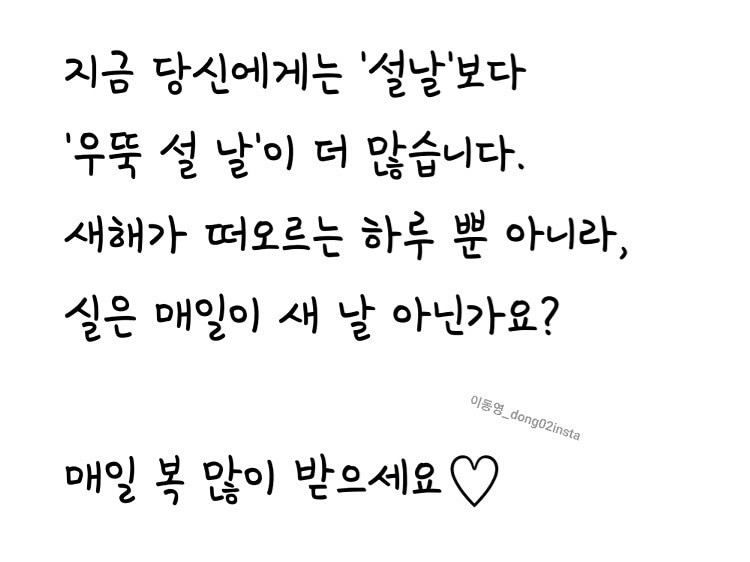 지금 당신에게는 '설날'보다
'우뚝 설 날'이 더 많습니다.
새해가 떠오르는 하루 뿐 아니라,
실은 매일이 새 날 아닌가요?
이동영_dong02insta
매일 복 많이 받으세요♡